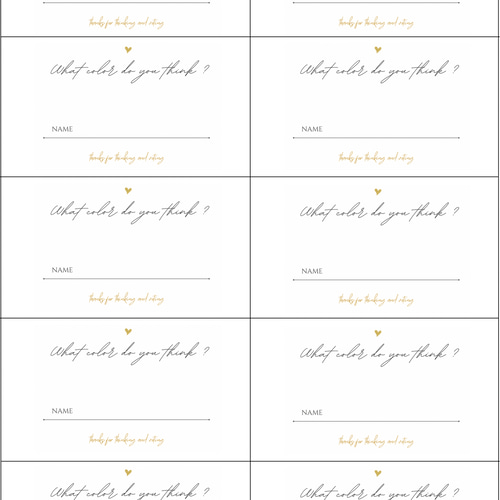 thanks for thinking and voting
thanks for thinking and voting
What color do you think ?
What color do you think ?
NAME
NAME
thanks for thinking and voting
thanks for thinking and voting
What color do you think ?
What color do you think ?
NAME
NAME
thanks for thinking and voting
thanks for thinking and voting
What color do you think ?
What color do you think ?
NAME
NAME
thanks for thinking and voting
thanks for thinking and voting
What color do you think ?
What color do you think ?